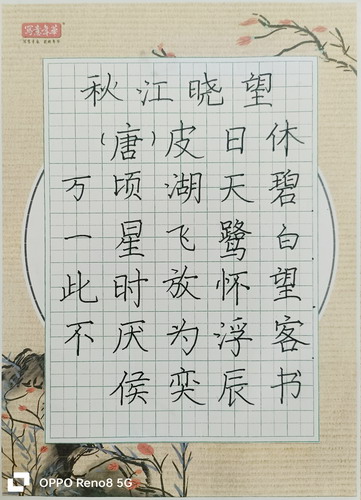 寫意年華
秋江晓望
（唐）皮日休
万顷湖天碧
一星飞鹭白
此时放怀望
不厌为浮客
侯奕辰书
OPPO Reno8 5G